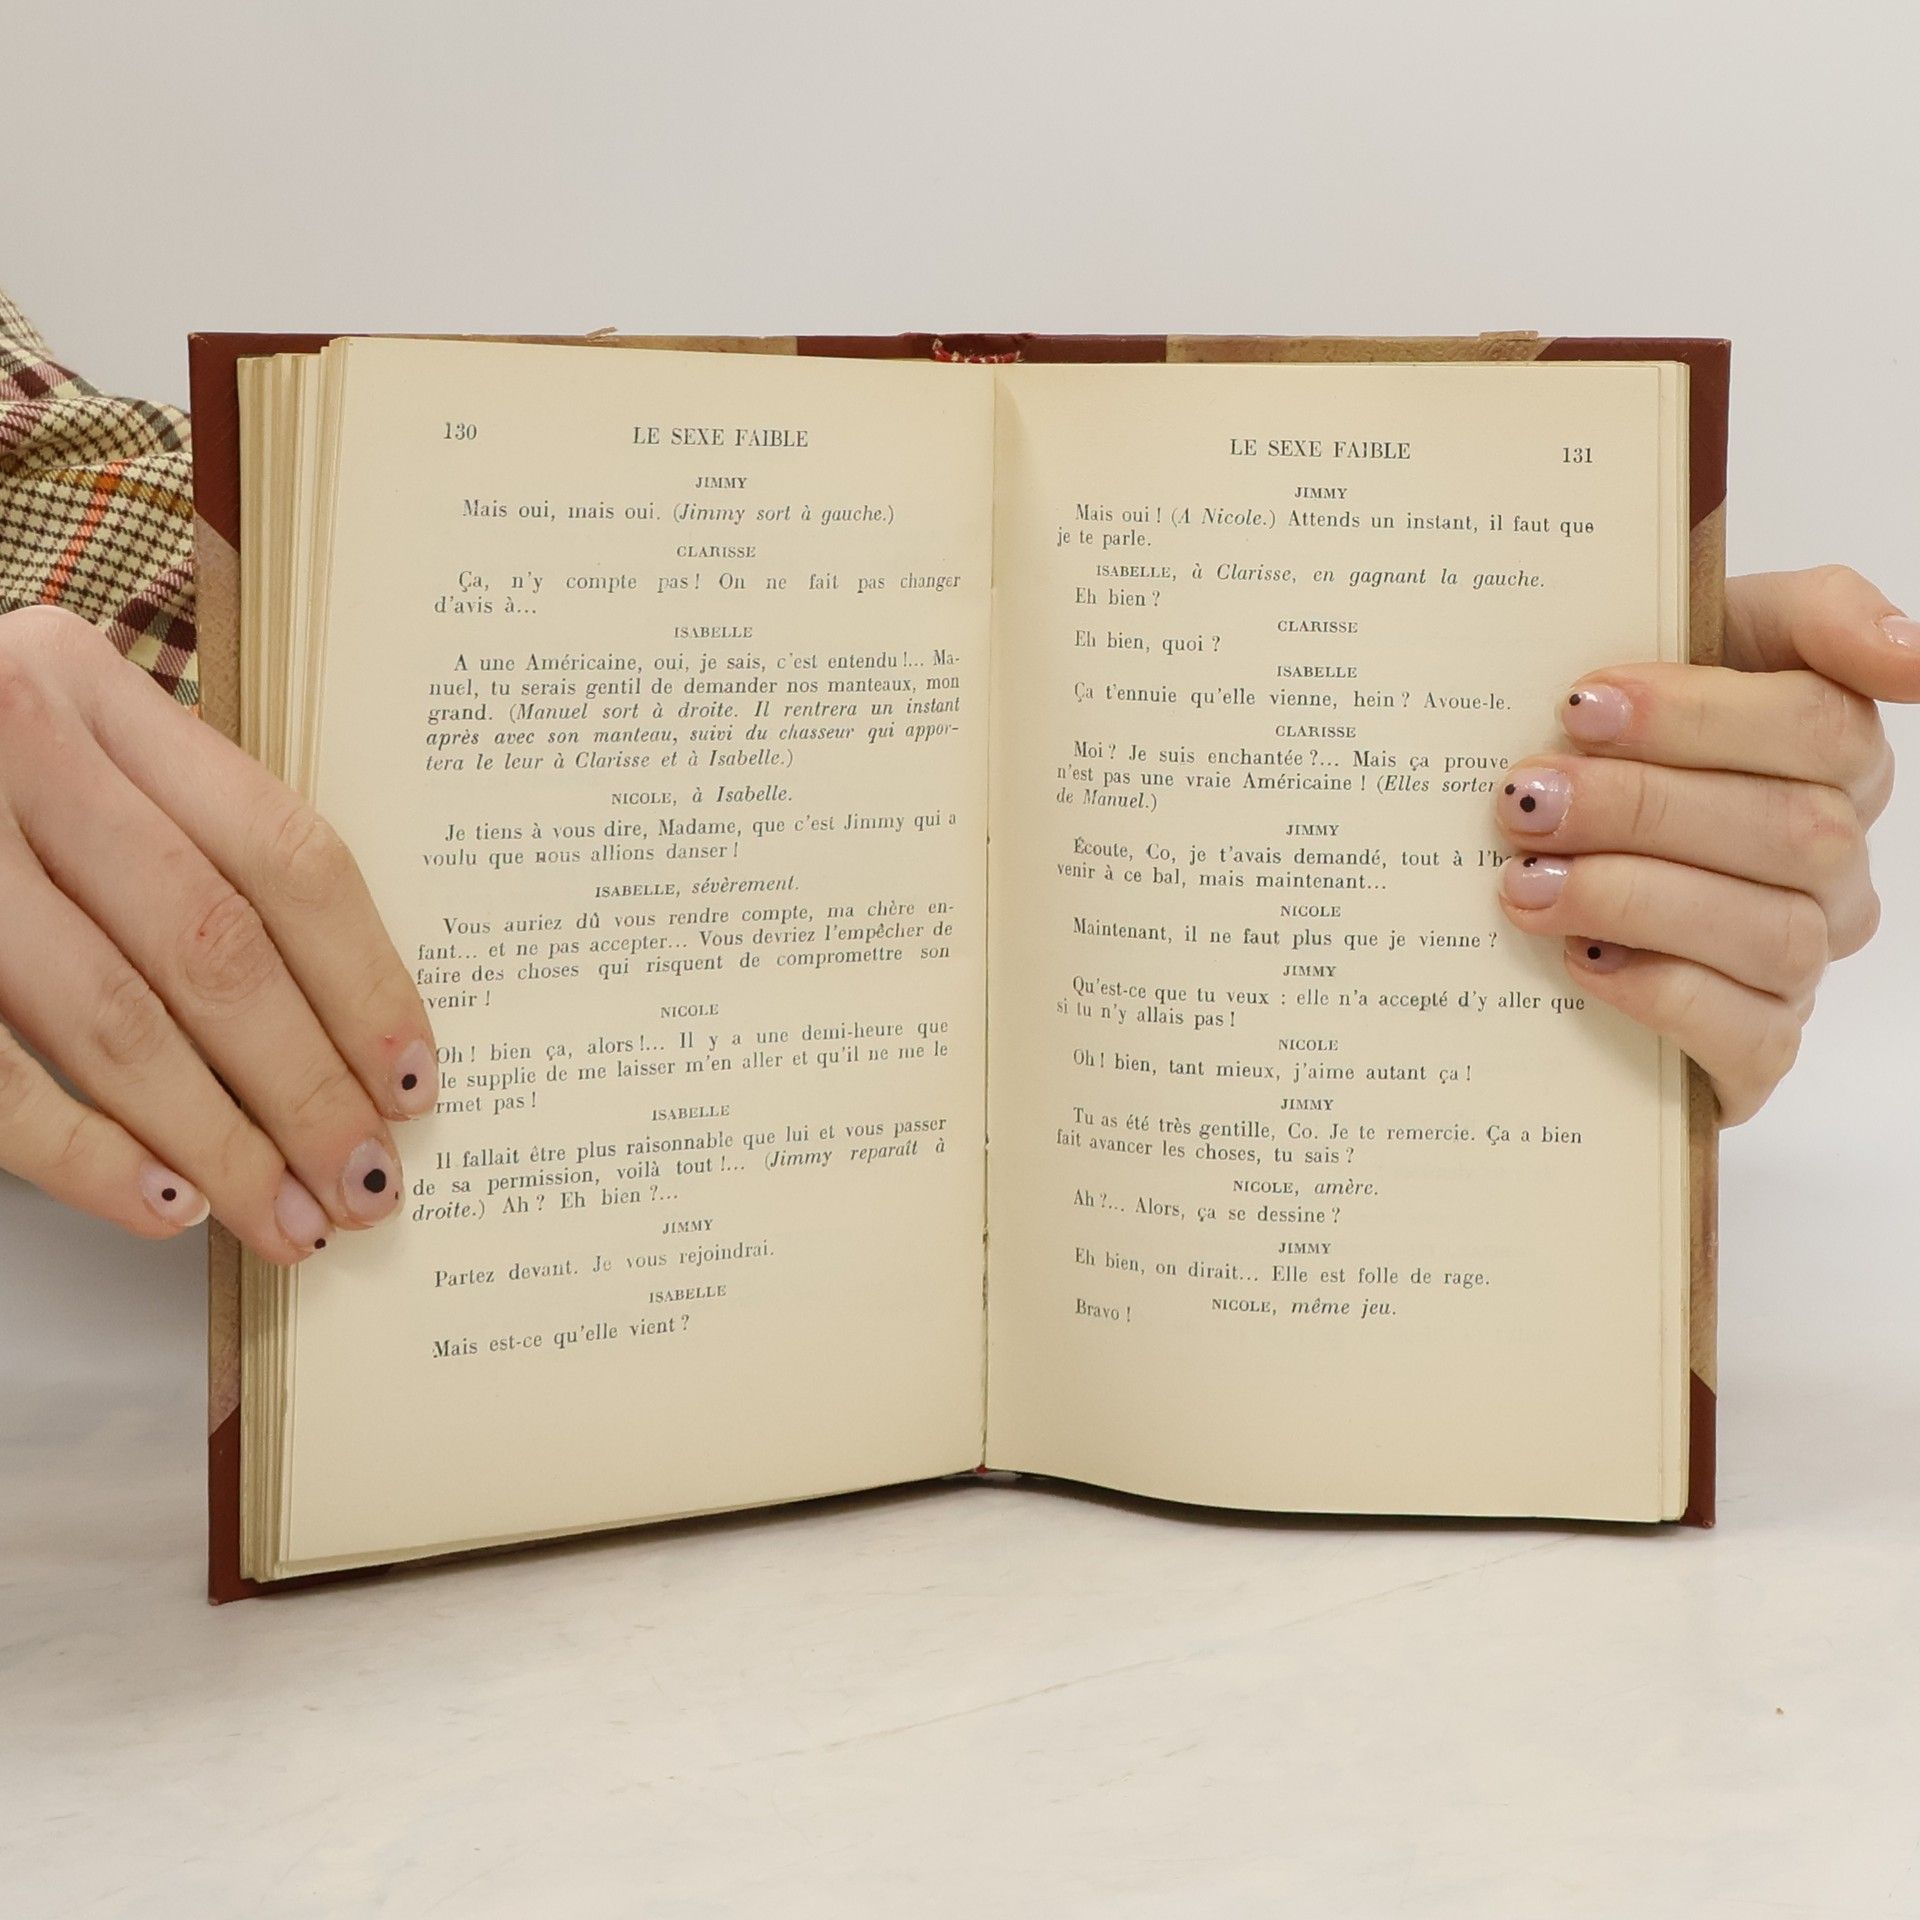 130 LE SEXE FAIBLE
JIMMY
Mais oui, mais oui. (Jimmy sort à gauche.)
CLARISSE
Ça, n'y compte pas ! On ne fait pas changer
d'avis à...
ISABELLE
A une Américaine, oui, je sais, c'est entendu !... Ma-
nuel, tu serais gentil de demander nos manteaux, mon
grand. (Manuel sort à droite. Il rentrera un instant
après avec son manteau, suivi du chasseur qui appor-
tera le leur à Clarisse et à Isabelle.)
NICOLE, à Isabelle.
Je tiens à vous dire, Madame, que c'est Jimmy qui a
voulu que nous allions danser !
ISABELLE, sévèrement.
Vous auriez dû vous rendre compte, ma chère en-
fant... et ne pas accepter... Vous devriez l'empêcher de
faire des choses qui risquent de compromettre son
venir !
NICOLE
Oh ! bien ça, alors !... Il y a une demi-heure que
le supplie de me laisser m'en aller et qu'il ne me le
rmet pas !
ISABELLE
Il fallait être plus raisonnable que lui et vous passer
de sa permission, voilà tout !... (Jimmy reparaît à
droite.) Ah ? Eh bien ?...
JIMMY
Partez devant. Je vous rejoindrai.
ISABELLE
Mais est-ce qu'elle vient ?
LE SEXE FAIBLE 131
JIMMY
Mais oui ! (A Nicole.) Attends un instant, il faut que
je te parle.
ISABELLE, à Clarisse, en gagnant la gauche.
Eh bien ?
CLARISSE
Eh bien, quoi ?
ISABELLE
Ça t'ennuie qu'elle vienne, hein ? Avoue-le.
CLARISSE
Moi ? Je suis enchantée ?... Mais ça prouve
n'est pas une vraie Américaine ! (Elles sorten
de Manuel.)
JIMMY
Écoute, Co, je t'avais demandé, tout à l'h
venir à ce bal, mais maintenant...
NICOLE
Maintenant, il ne faut plus que je vienne ?
JIMMY
Qu'est-ce que tu veux : elle n'a accepté d'y aller que
si tu n'y allais pas !
NICOLE
Oh ! bien, tant mieux, j'aime autant ça !
JIMMY
Tu as été très gentille, Co. Je te remercie. Ça a bien
fait avancer les choses, tu sais ?
NICOLE, amère.
Ah ?... Alors, ça se dessine ?
JIMMY
Eh bien, on dirait... Elle est folle de rage.
NICOLE, même jeu.
Bravo !